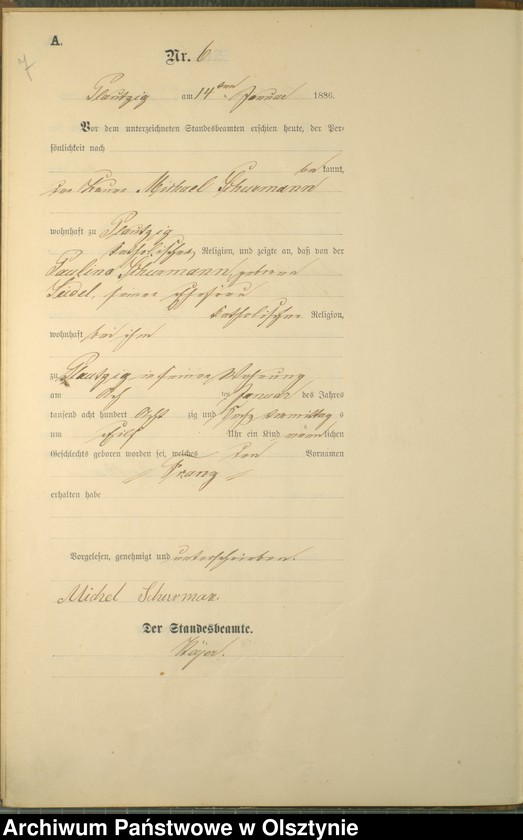 A.
7
Nr. 6
Plautzig am 14ten Januar 1886.
Vor dem unterzeichneten Standesbeamten erschien heute, der Per-
sönlichkeit nach
bekannt,
der Michael Schurmann
wohnhaft zu Plautzig
katholischer Religion, und zeigte an, daß von der
Paulina Schurmann geborene
Seidel, seiner Ehefrau
katholischer Religion,
wohnhaft bei ihm
zu Plautzig in seiner Wohnung
am ten Januar des Jahres
tausend acht hundert Acht zig und Sechs Vormittags
um Uhr ein Kind männlichen
Geschlechts geboren worden sei, welches den Vornamen
Franz
erhalten habe
Vorgelesen, genehmigt und unterschrieben.
Michel Schurman.
Der Standesbeamte.
Archiwum Państwowe w Olsztynie